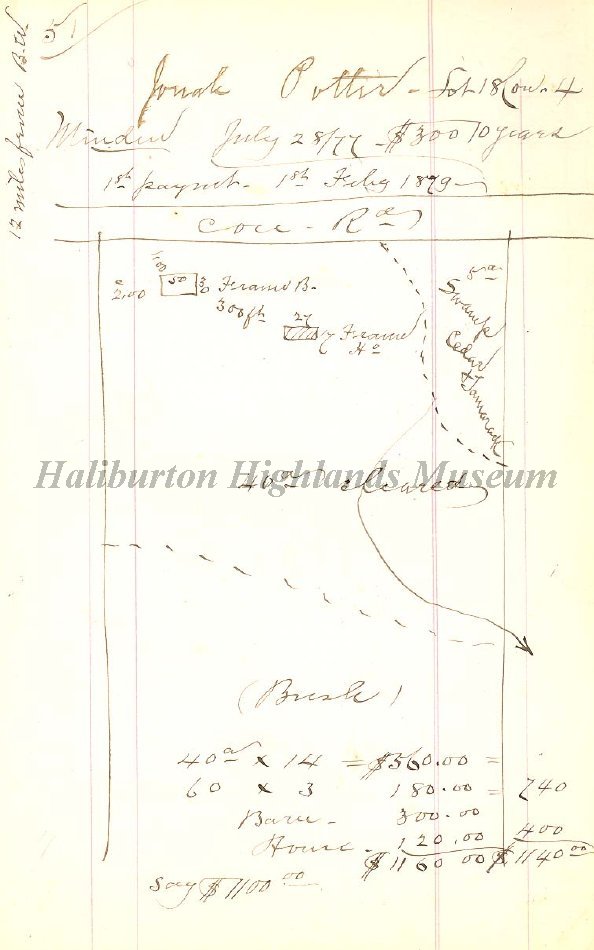 51
12 miles from B.W.
Jonah Potter - Lot 18 Con. 4
Minden July 28/77 - $300 10 years
1st paymt. - 1st Feby 1879 -
Conc - Rd
5 a
Swamp
Cedar
& Tamarack
200
50
30
Frame B.
300 ft
27
Frame
Ho
Haliburton Highlands Museum
40 a cleared
(Bush)
40 a x 14 = $560.00 =
60 x 3 180.00 = 740
Barn - 300.00
House - 120.00 400
$1160 00 $1140 00
Say $1100 00